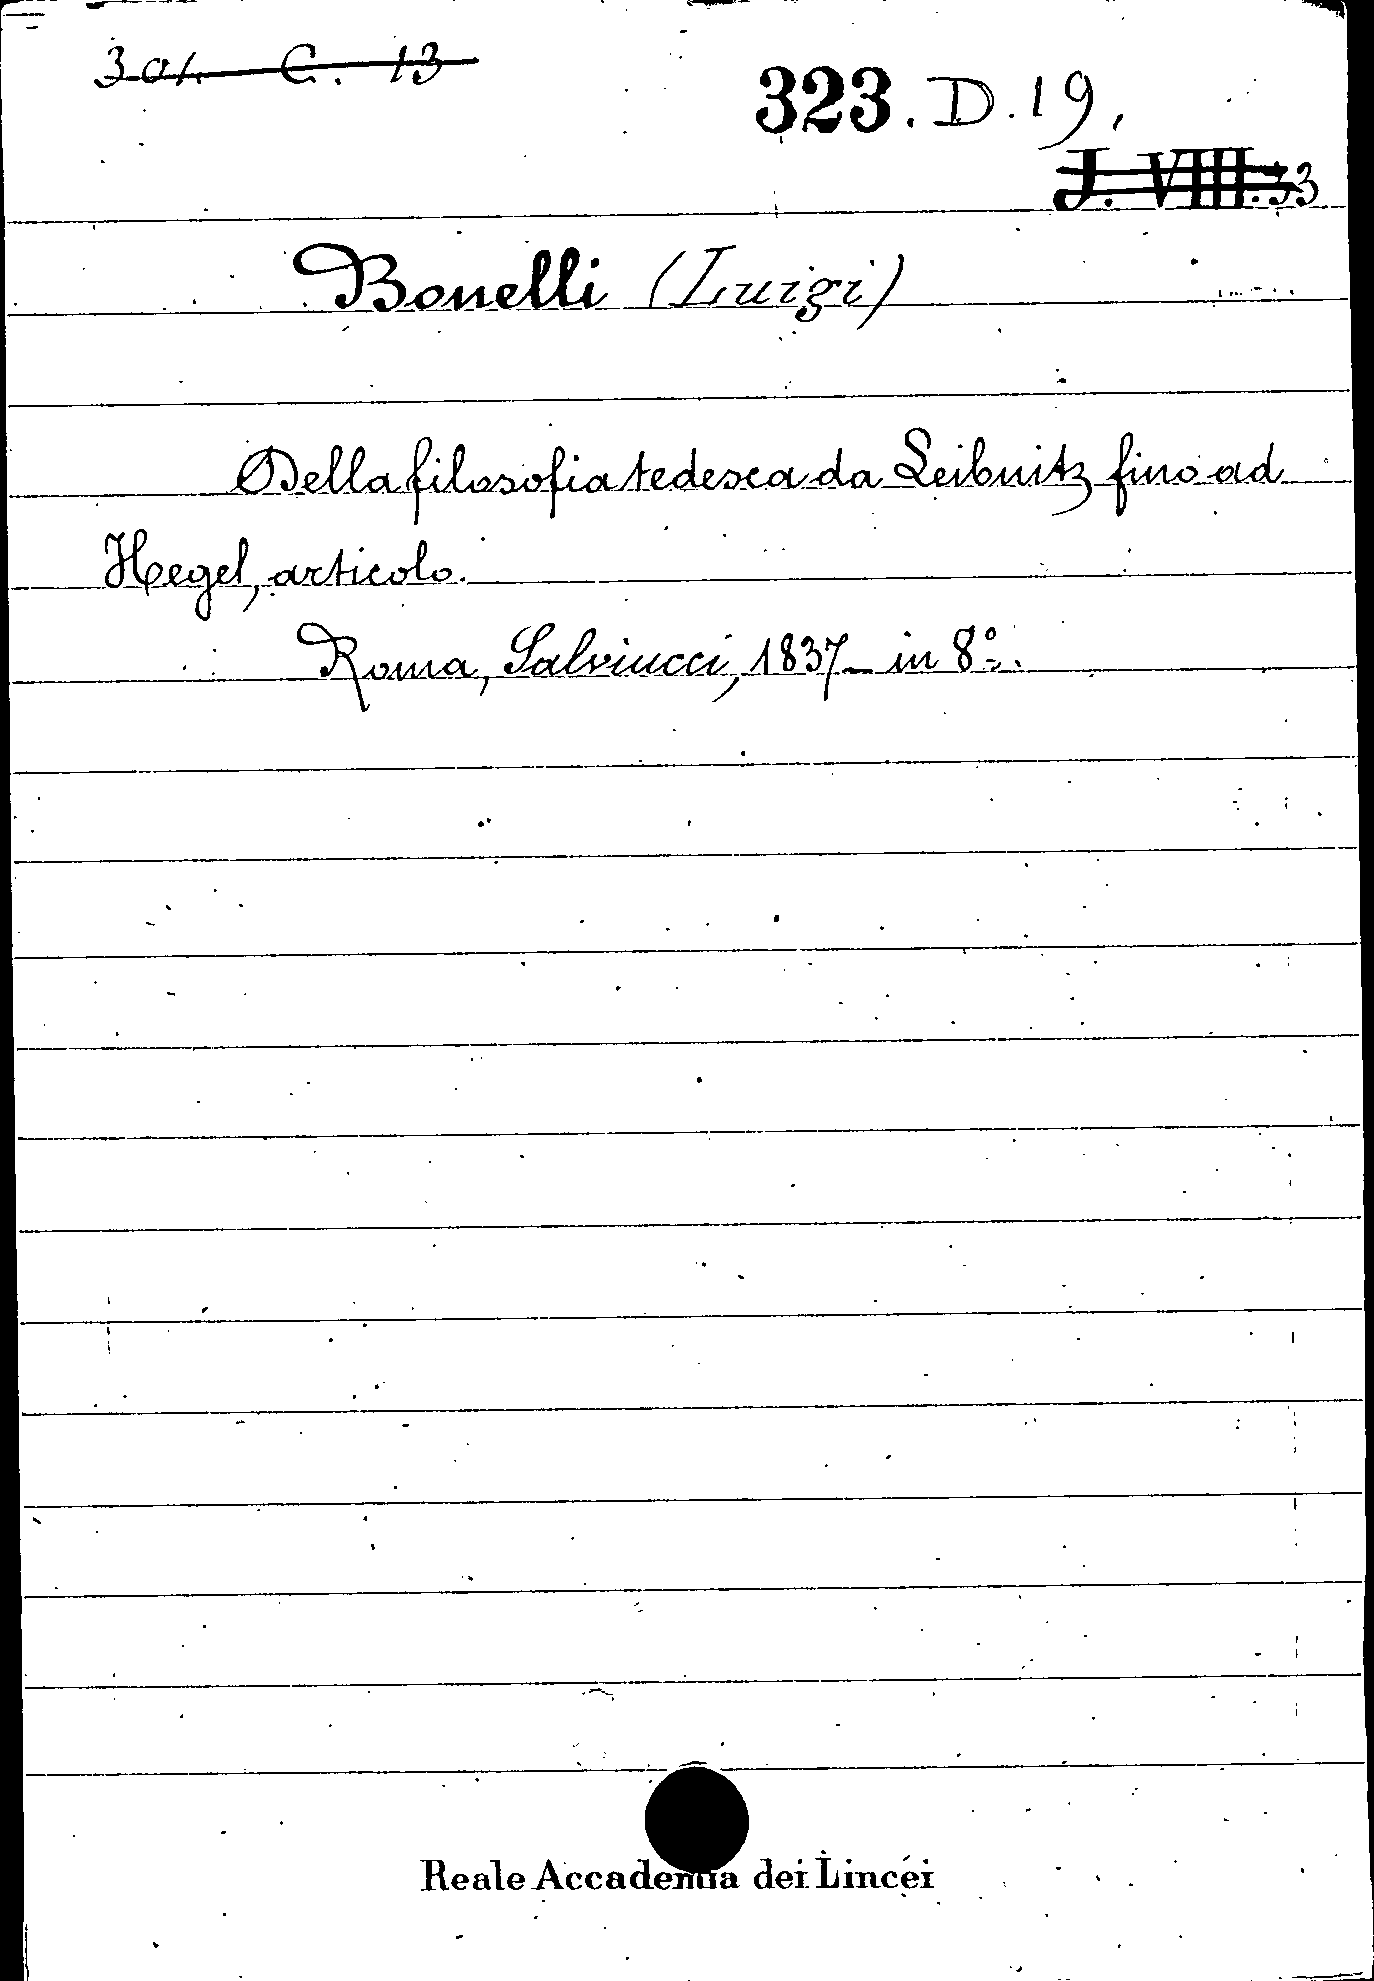 304. C. 13
323. D. 19.
J. VIII. 33
Bonelli (Luigi)
Della filosofia tedesca da Leibnitz fino ad
Hegel, articolo.
Roma, Salviucci, 1837 - in 8º.
Reale Accademia dei Lincei